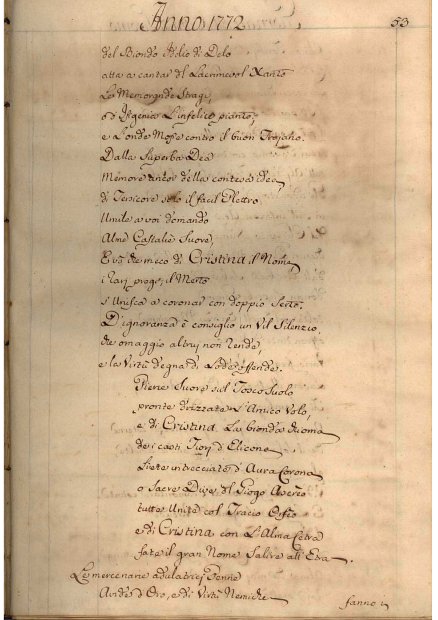 Anno 1772
53
del Biondo Iddio di Delo
atta a cantar del Lacrimevol Xanto
Le Memorande Stragi,
o d'Ifigenia L'infelice pianto,
e L'onde Mosse contro il buon Trojano
Dalla Superba Dea
Memore ancor della contesa Idea,
di Tersicore solo il facil Plettro
Umile a voi domando
Alme Castalie Suore,
E voi che meco di Cristina il Nome,
i rari pregi, il Merto
s'Unisca a coronar con doppio Serto.
D'ignoranza è consiglio un Vil Silenzio,
che omaggio altrui non rende,
e la Virtù degna di Lode offende.
Pierie Suore sul Tosco Suolo
pronte drizzate L'Amico Volo,
e di Cristina La bionda chioma
dei casti Fiori d'Elicona
Liete intrecciate d'Aurea Corona
o Sacre Dive del Giogo Ascreo
tutte Unite col Tracio Orfeo
e di Cristina con L'Alma Cetra
fate il gran Nome Salire all'Etra.
Le mercenarie adulatrici Penne
Avide d'Oro, e di Virtù Nemiche
fanno